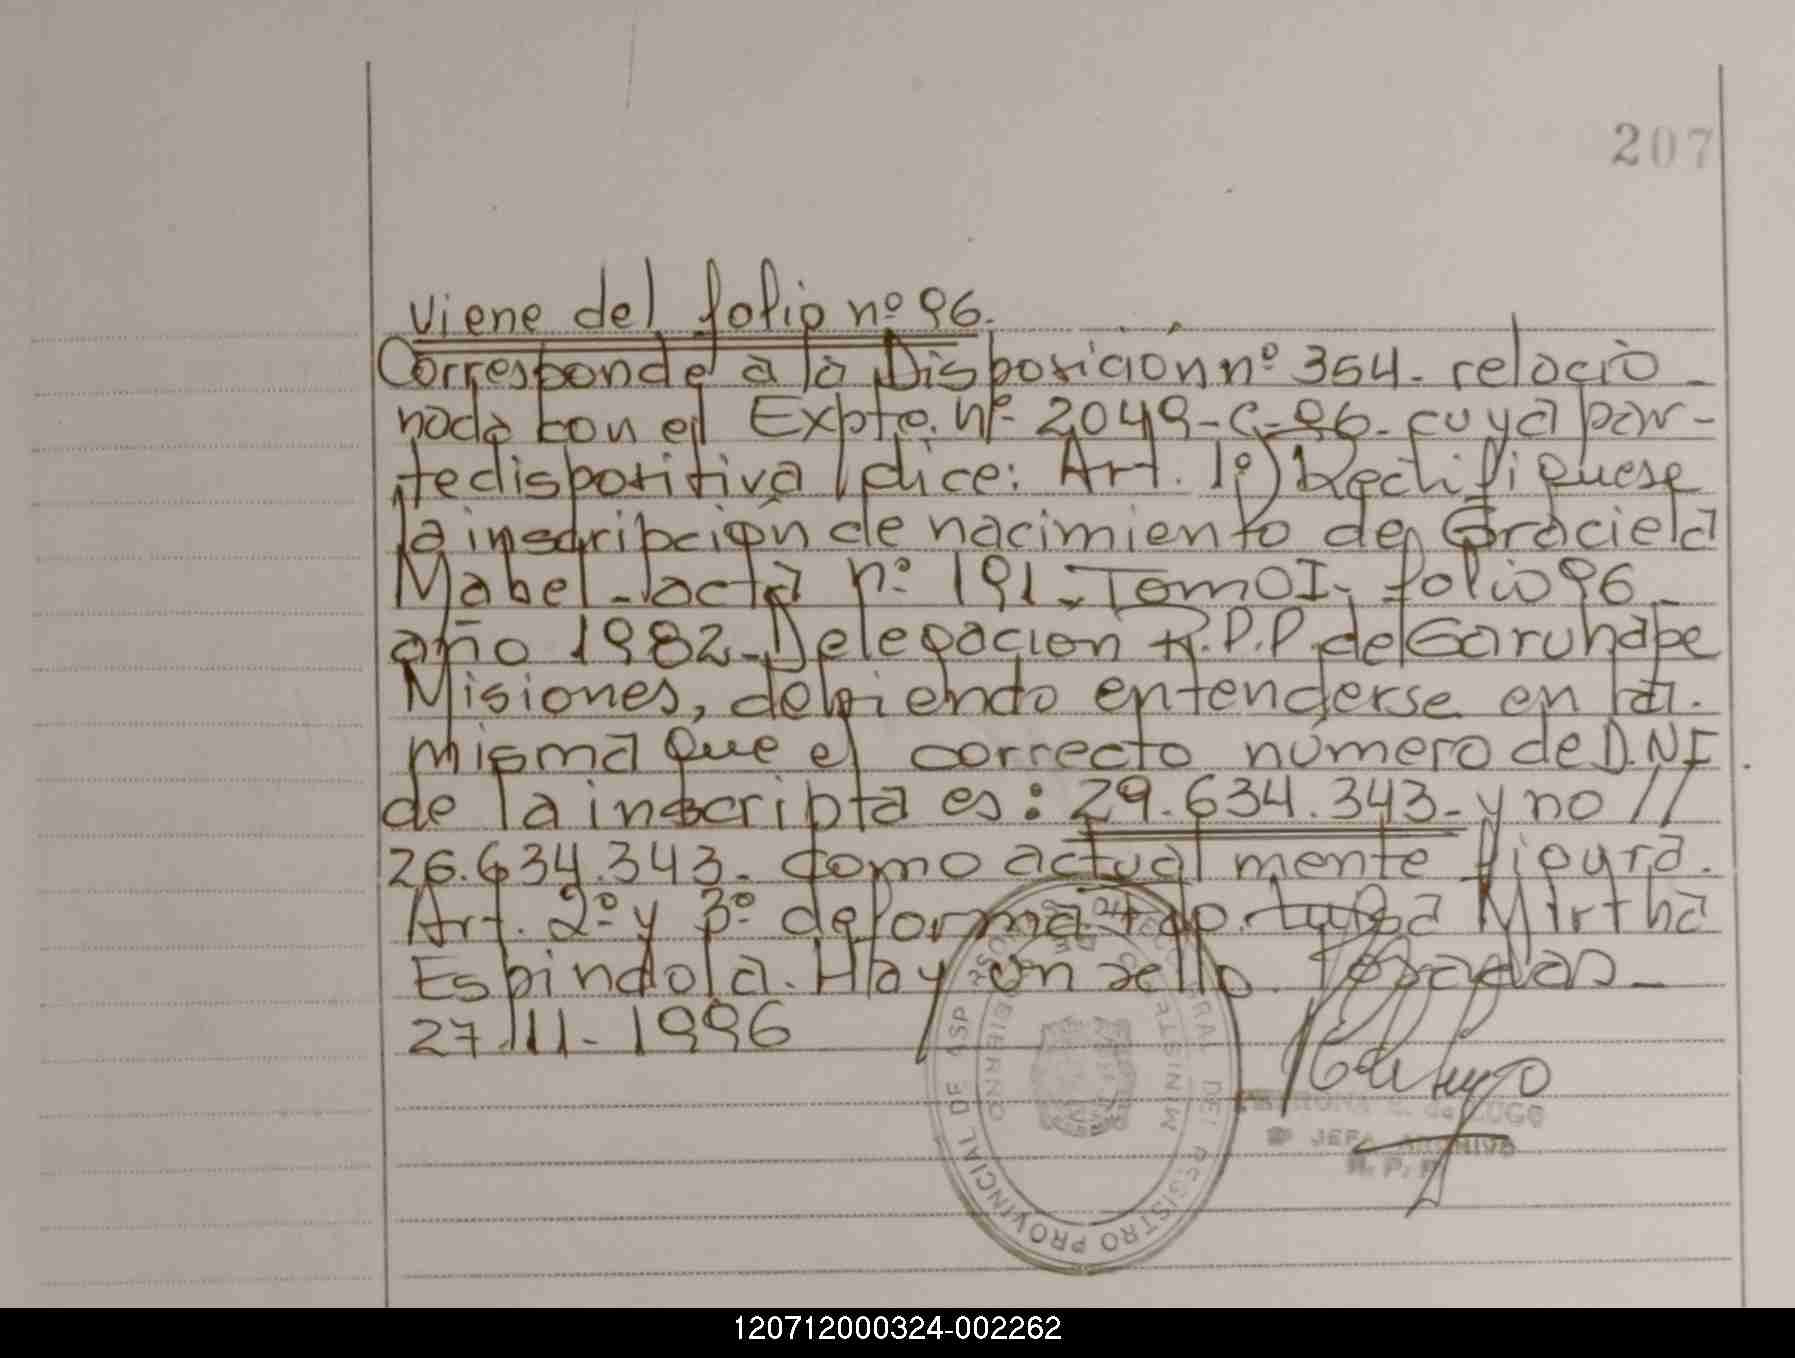 207
Viene del folio nº 96.
Corresponde a la Disposición nº 354. relacio_
nada con el Expte. nº 2049-C-96. cuya par-
te dispositiva dice: Art. 1º) Rectifiquese
la inscripción de nacimiento de Graciela
Mabel - acta nº 191 - Tomo I - folio 96
año 1982 - Delegacion R.P.P. de Garuhape
Misiones, debiendo entenderse en la.
misma que el correcto número de D.N.I.
de la inscripta es: 29.634.343- y no //
26.634.343. como actualmente figura.
Art. 2º y 3º de forma. Fdo. Mirtha
Espindola. Hay un sello. Posadas_
27-11-1996
REGISTRO PROVINCIAL DE
JEFA ARCHIVO
R. P. P.
120712000324-002262